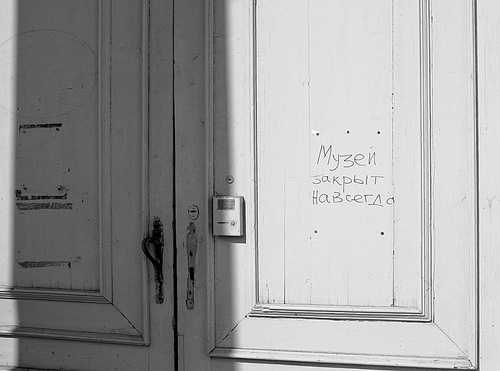 Музей
закрыт
навсегда